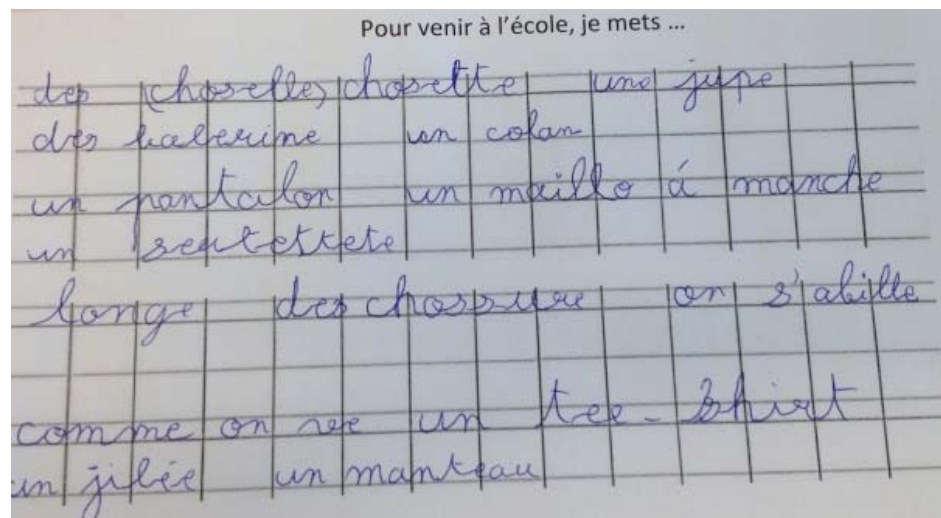 Pour venir à l'école, je mets ...
des (choselles) chosette une jupe
des balerine un colan
un pantalon un maillo á manche
un
longe des chossure on s'abille
comme on vee un tee-shirt
un jilée un manteau